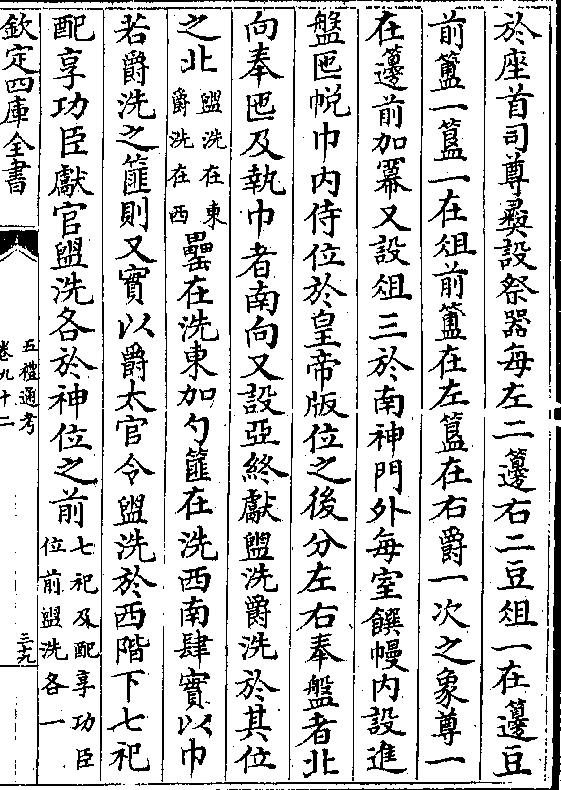 於座首司尊彜設祭器每左二籩右二豆俎一在籩豆
前簠一簋一在俎前簠在左簋在右爵一次之象尊一
在籩前加羃又設俎三於南神門外每室饌幔内設進
盤匜帨巾内侍位於皇帝版位之後分左右奉盤者北
向奉匜及執巾者南向又設亞終獻盥洗爵洗於其位
之北盥洗在東爵洗在西罍在洗東加勺篚在洗西南肆實以巾
若爵洗之篚則又實以爵太官令盥洗於西階下七祀
配享功臣獻官盥洗各於神位之前七祀及配享功臣位前盥洗各一
欽定四庫全書
五禮通考
卷九十二
三十九